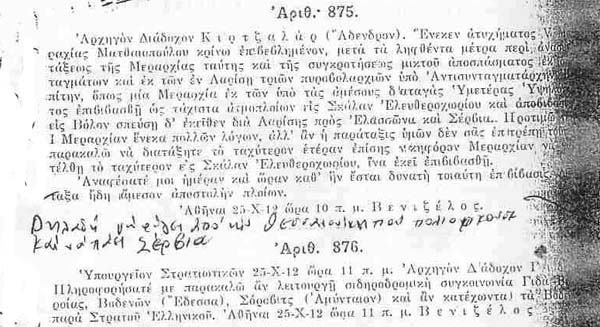 Ἀριθ. 875.
Ἀρχηγὸν Διάδοχον Κιρτζαλὰρ (Ἄδενδρον). Ἕνεκεν ἀτυχήματος V με
ραχίας Ματθαιοπούλου κρίνω ἐπιβεβλημένον, μετὰ τὰ ληφθέντα μέτρα περὶ ἀνα
τάξεως τῆς Μεραρχίας ταύτης καὶ τῆς συγκροτήσεως μικτοῦ ἀποσπάσματος ἐκ
ταγμάτων καὶ ἐκ τῶν ἐν Λαρίσῃ τριῶν πυροβολαρχιῶν ὑπὸ Ἀντισυνταγματάρχην
πίτην, ὅπως μία Μεραρχία ἐκ τῶν ὑπὸ τὰς ἀμέσους διαταγὰς Ὑμετέρας Ὑψη
τος ἐπιβιβασθῇ ὡς τάχιστα ἀτμοπλοίων εἰς Σκάλαν Ἐλευθεροχωρίου καὶ ἀποβιβα
εἰς Βόλον σπεύσῃ δ' ἐκεῖθεν διὰ Λαρίσης πρὸς Ἐλασσῶνα καὶ Σέρβια. Προτιμῶ
Ι Μεραρχίαν ἕνεκα πολλῶν λόγων, ἀλλ' ἂν ἡ παράταξις ὑμῶν δὲν σᾶς ἐπιτρέπῃ το
παρακαλῶ νὰ διατάξητε τὸ ταχύτερον ἑτέραν ἐπίσης νικηφόρον Μεραρχίαν νὰ
τέλθῃ τὸ ταχύτερον εἰς Σκάλαν Ἐλευθεροχωρίου, ἵνα ἐκεῖ ἐπιβιβασθῇ.
Ἀναφέρατέ μοι ἡμέραν καὶ ὥραν καθ' ἣν ἔσται δυνατὴ τοιαύτη ἐπιβίβασις
ταξα ἤδη ἄμεσον ἀποστολὴν πλοίων.
Ἀθῆναι 25-Χ-12 ὥρα 10 π. μ. Βενιζέλος.
Δηλαδή να φύγει από την Θεσσαλονίκη που πολιορκούσε
και να πάει Σέρβια
Ἀριθ. 876.
Ὑπουργεῖον Στρατιωτικῶν 25-Χ-12 ὥρα 11 π. μ. Ἀρχηγὸν Διάδοχον Γι
Πληροφορήσατέ με παρακαλῶ ἂν λειτουργῇ σιδηροδρομικὴ συγκοινωνία Γιδᾶ Βε
ροίας, Βοδενῶν (Ἔδεσσα), Σόροβιτς (Ἀμύνταιον) καὶ ἂν κατέχωνται τὰ
παρὰ Στρατοῦ Ἑλληνικοῦ. Ἀθῆναι 25-Χ-12 ὥρα 11 π. μ. Βενιζέλος